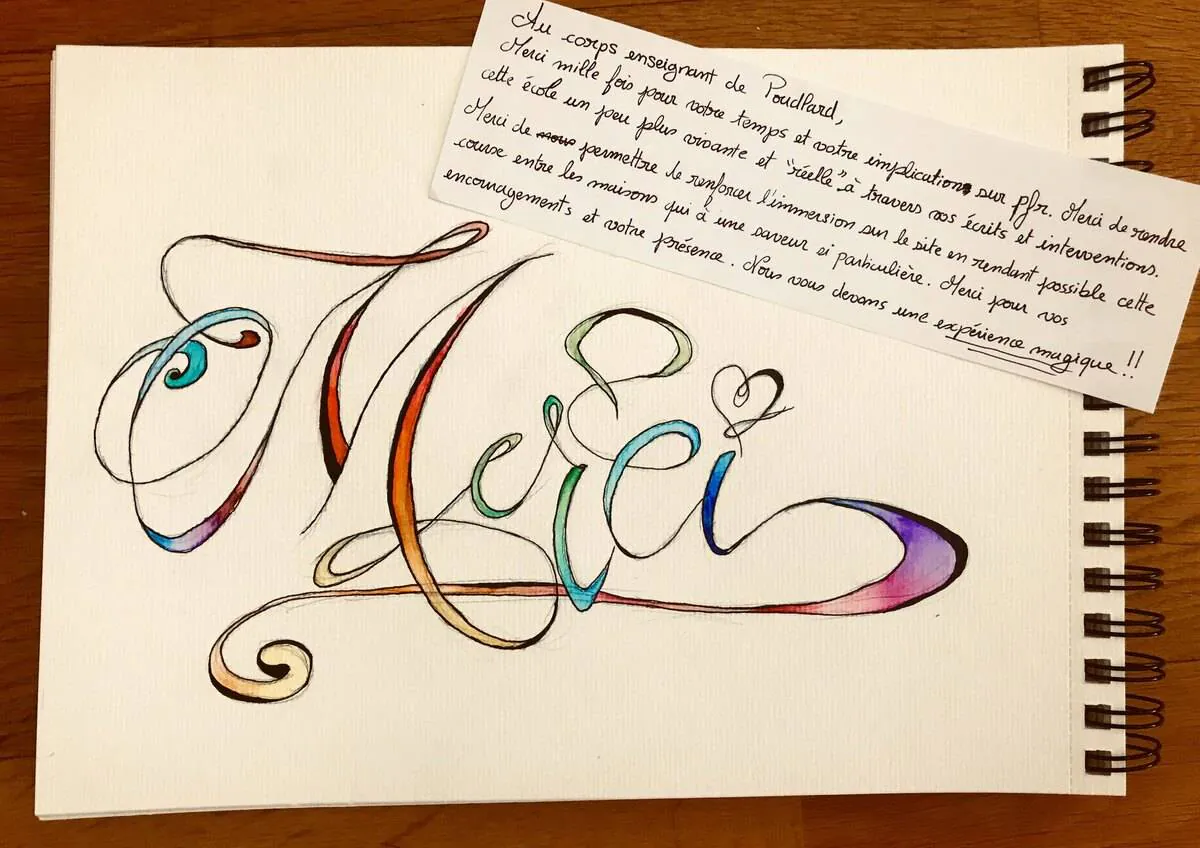 Au corps enseignant de Poudlard,
Merci mille fois pour votre temps et votre implication sur pfr. Merci de rendre
cette école un peu plus vivante et "réelle" à travers vos écrits et interventions.
Merci de permettre de renforcer l'immersion sur le site en rendant possible cette
course entre les maisons qui à une saveur si particulière. Merci pour vos
encouragements et votre présence. Nous vous devons une expérience magique !!
Merci